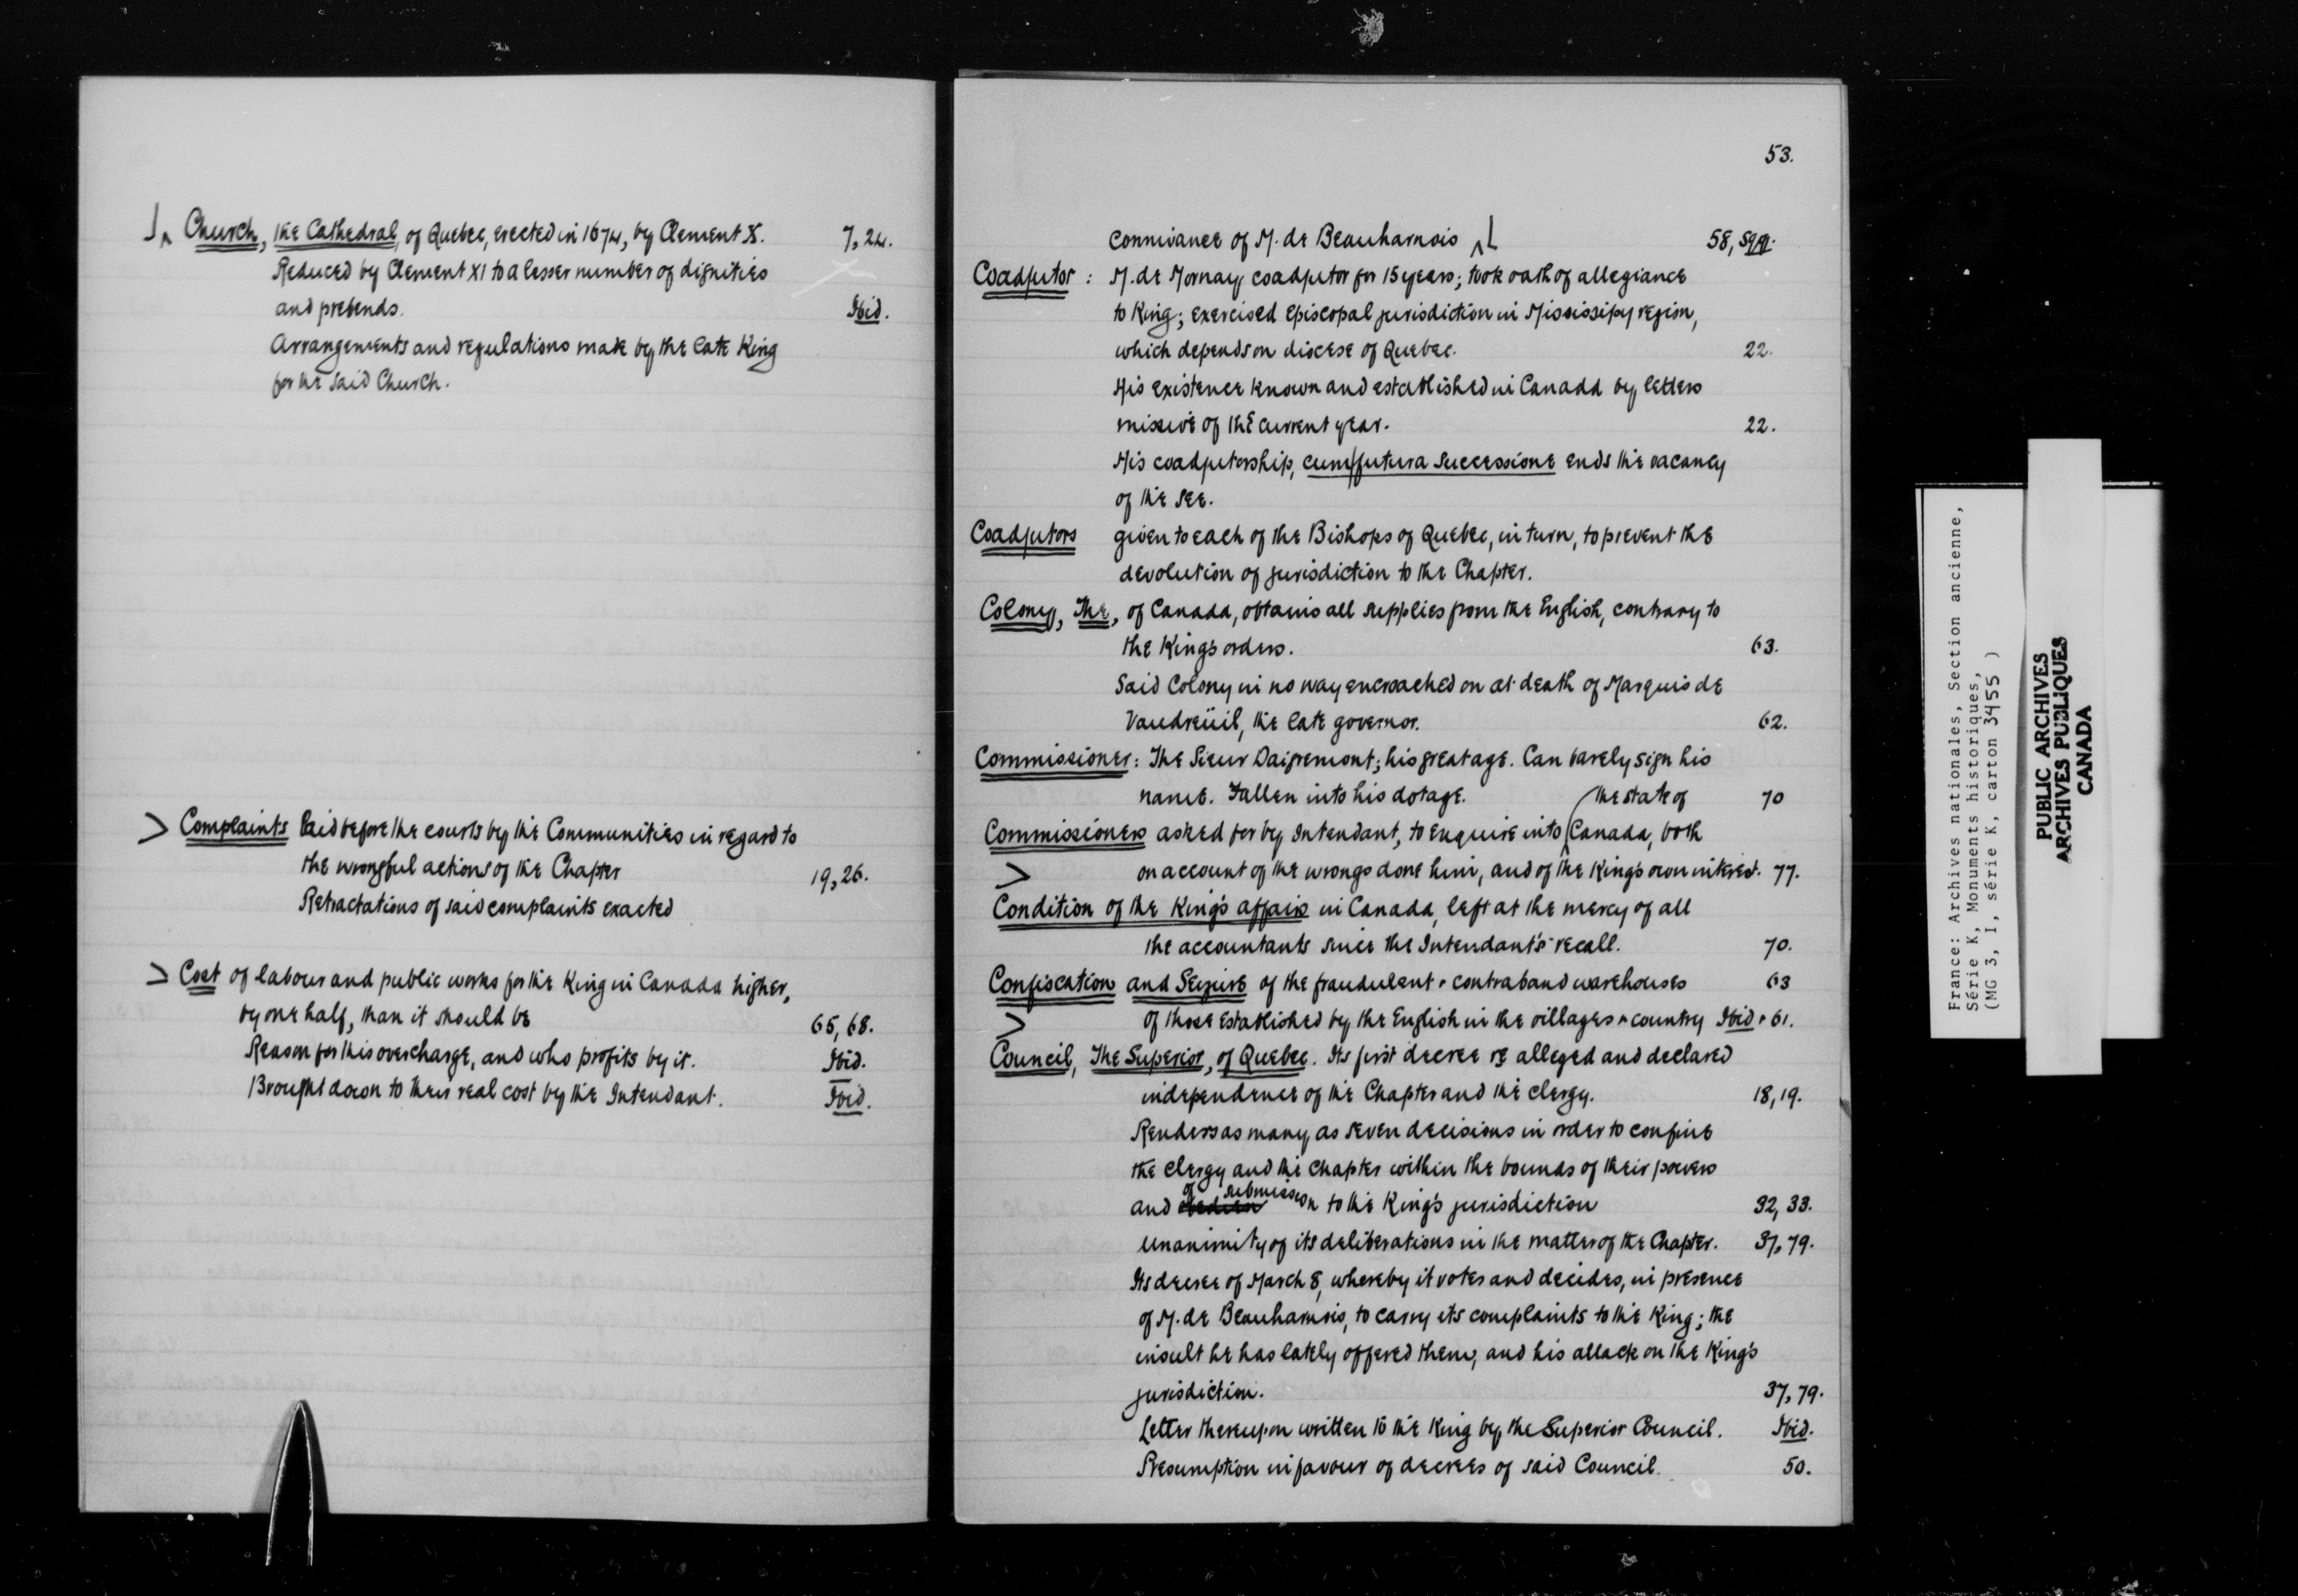 Church, the Cathedral, of Quebec, erected in 1674, by Clement X. 7, 24.
Reduced by Clement XI to a lesser number of dignities
and prebends. Ibid.
Arrangements and regulations made by the late King
for the said Church.
Complaints laid before the courts by the Communities in regard to
the wrongful actions of the Chapter 19, 26.
Retractations of said complaints exacted
Cost of labour and public works for the King in Canada higher,
by one half, than it should be 65, 68.
Reason for this overcharge, and who profits by it. Ibid.
Brought down to their real cost by the Intendant. Ibid.
53.
Connivance of M. de Beauharnois 58, sqq.
Coadjutor : M. de Mornay, coadjutor for 15 years; took oath of allegiance
to King; exercised Episcopal jurisdiction in Mississipy region,
which depends on diocese of Quebec. 22.
His existence known and established in Canada by letters
missive of the current year. 22.
His coadjutorship, cum futura successione ends the vacancy
of the see.
Coadjutors given to each of the Bishops of Quebec, in turn, to prevent the
devolution of jurisdiction to the Chapter.
Colony, The, of Canada, obtains all supplies from the English, contrary to
the King's orders. 63.
Said Colony in no way encroached on at death of Marquis de
Vaudreüil, the late governor. 62.
Commissioner: The Sieur Daigremont; his great age. Can barely sign his
name. Fallen into his dotage. 70
the state of
Commissioners asked for by Intendant, to enquire into Canada, both
on account of the wrongs done him, and of the King's own interest. 77.
Condition of the King's affairs in Canada, left at the mercy of all
the accountants since the Intendant's recall. 70.
Confiscation and Seizure of the fraudulent + contraband warehouses 63
of those established by the English in the villages + country Ibid + 61.
Council, The Superior, of Quebec. Its first decree re alleged and declared
independence of the Chapter and the clergy. 18, 19.
Renders as many as seven decisions in order to confine
the clergy and the Chapter within the bounds of their powers
of submission
and to the King's jurisdiction 32, 33.
Unanimity of its deliberations in the matter of the Chapter. 37, 79.
Its decree of March 8, whereby it votes and decides, in presence
of M. de Beauharnois, to carry its complaints to the King; the
insult he has lately offered them, and his attack on the King's
jurisdiction. 37, 79.
Letter thereupon written to the King by the Superior Council. Ibid.
Presumption in favour of decrees of said Council. 50.
France: Archives nationales, Section ancienne,
Série K, Monuments historiques,
(MG 3, I, série K, carton 3455 )
PUBLIC ARCHIVES
ARCHIVES PUBLIQUES
CANADA